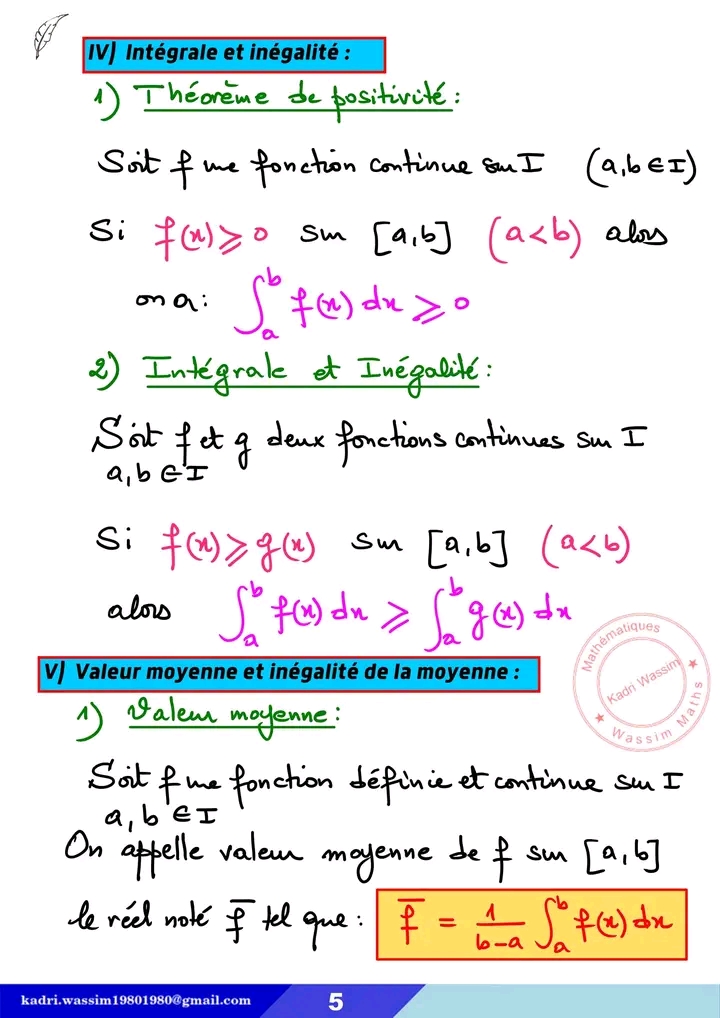 IV) Intégrale et inégalité :
1) Théorème de positivité :
Soit f une fonction continue sur I (a,b ∈ I)
Si f(x) ⩾ 0 sur [a,b] (a<b) alors
on a : ∫_a^b f(x) dx ⩾ 0
2) Intégrale et Inégalité :
Soit f et g deux fonctions continues sur I
a,b ∈ I
Si f(x) ⩾ g(x) sur [a,b] (a<b)
alors ∫_a^b f(x) dx ⩾ ∫_a^b g(x) dx
Mathématiques
Kadri Wassim
★ Wassim Maths ★
V) Valeur moyenne et inégalité de la moyenne :
1) Valeur moyenne :
Soit f une fonction définie et continue sur I
a, b ∈ I
On appelle valeur moyenne de f sur [a,b]
le réel noté f̅ tel que : f̅ = 1/(b-a) ∫_a^b f(x) dx
kadri.wassim19801980@gmail.com 5